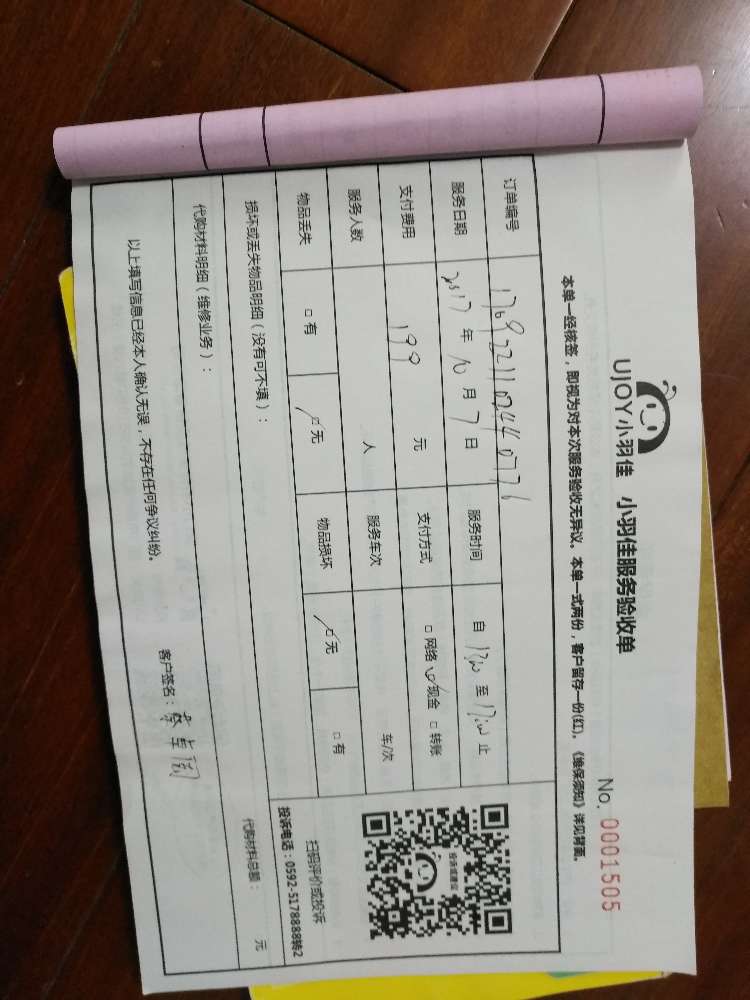 UJOY小羽佳 小羽佳服务验收单
No. 0001505
本单一经核签，即视为对本次服务验收无异议。本单一式两份，客户留存一份(红)。《维保须知》详见背面。
订单编号
服务日期 2017 年 10 月 7 日 服务时间 自 至 止
支付费用 199 元 支付方式 □ 网络 □ 现金 □ 转账
服务人数 人 服务车次 车/次
物品丢失 □ 有 □ 无 物品损坏 □ 无 □ 有
投诉或建议
扫码评价或投诉
投诉电话：0592-5178888转2
损坏或丢失物品明细（没有可不填）：
代购材料明细（维修业务）：
代购材料总额： 元
以上填写信息已经本人确认无误，不存在任何争议纠纷。
客户签名：